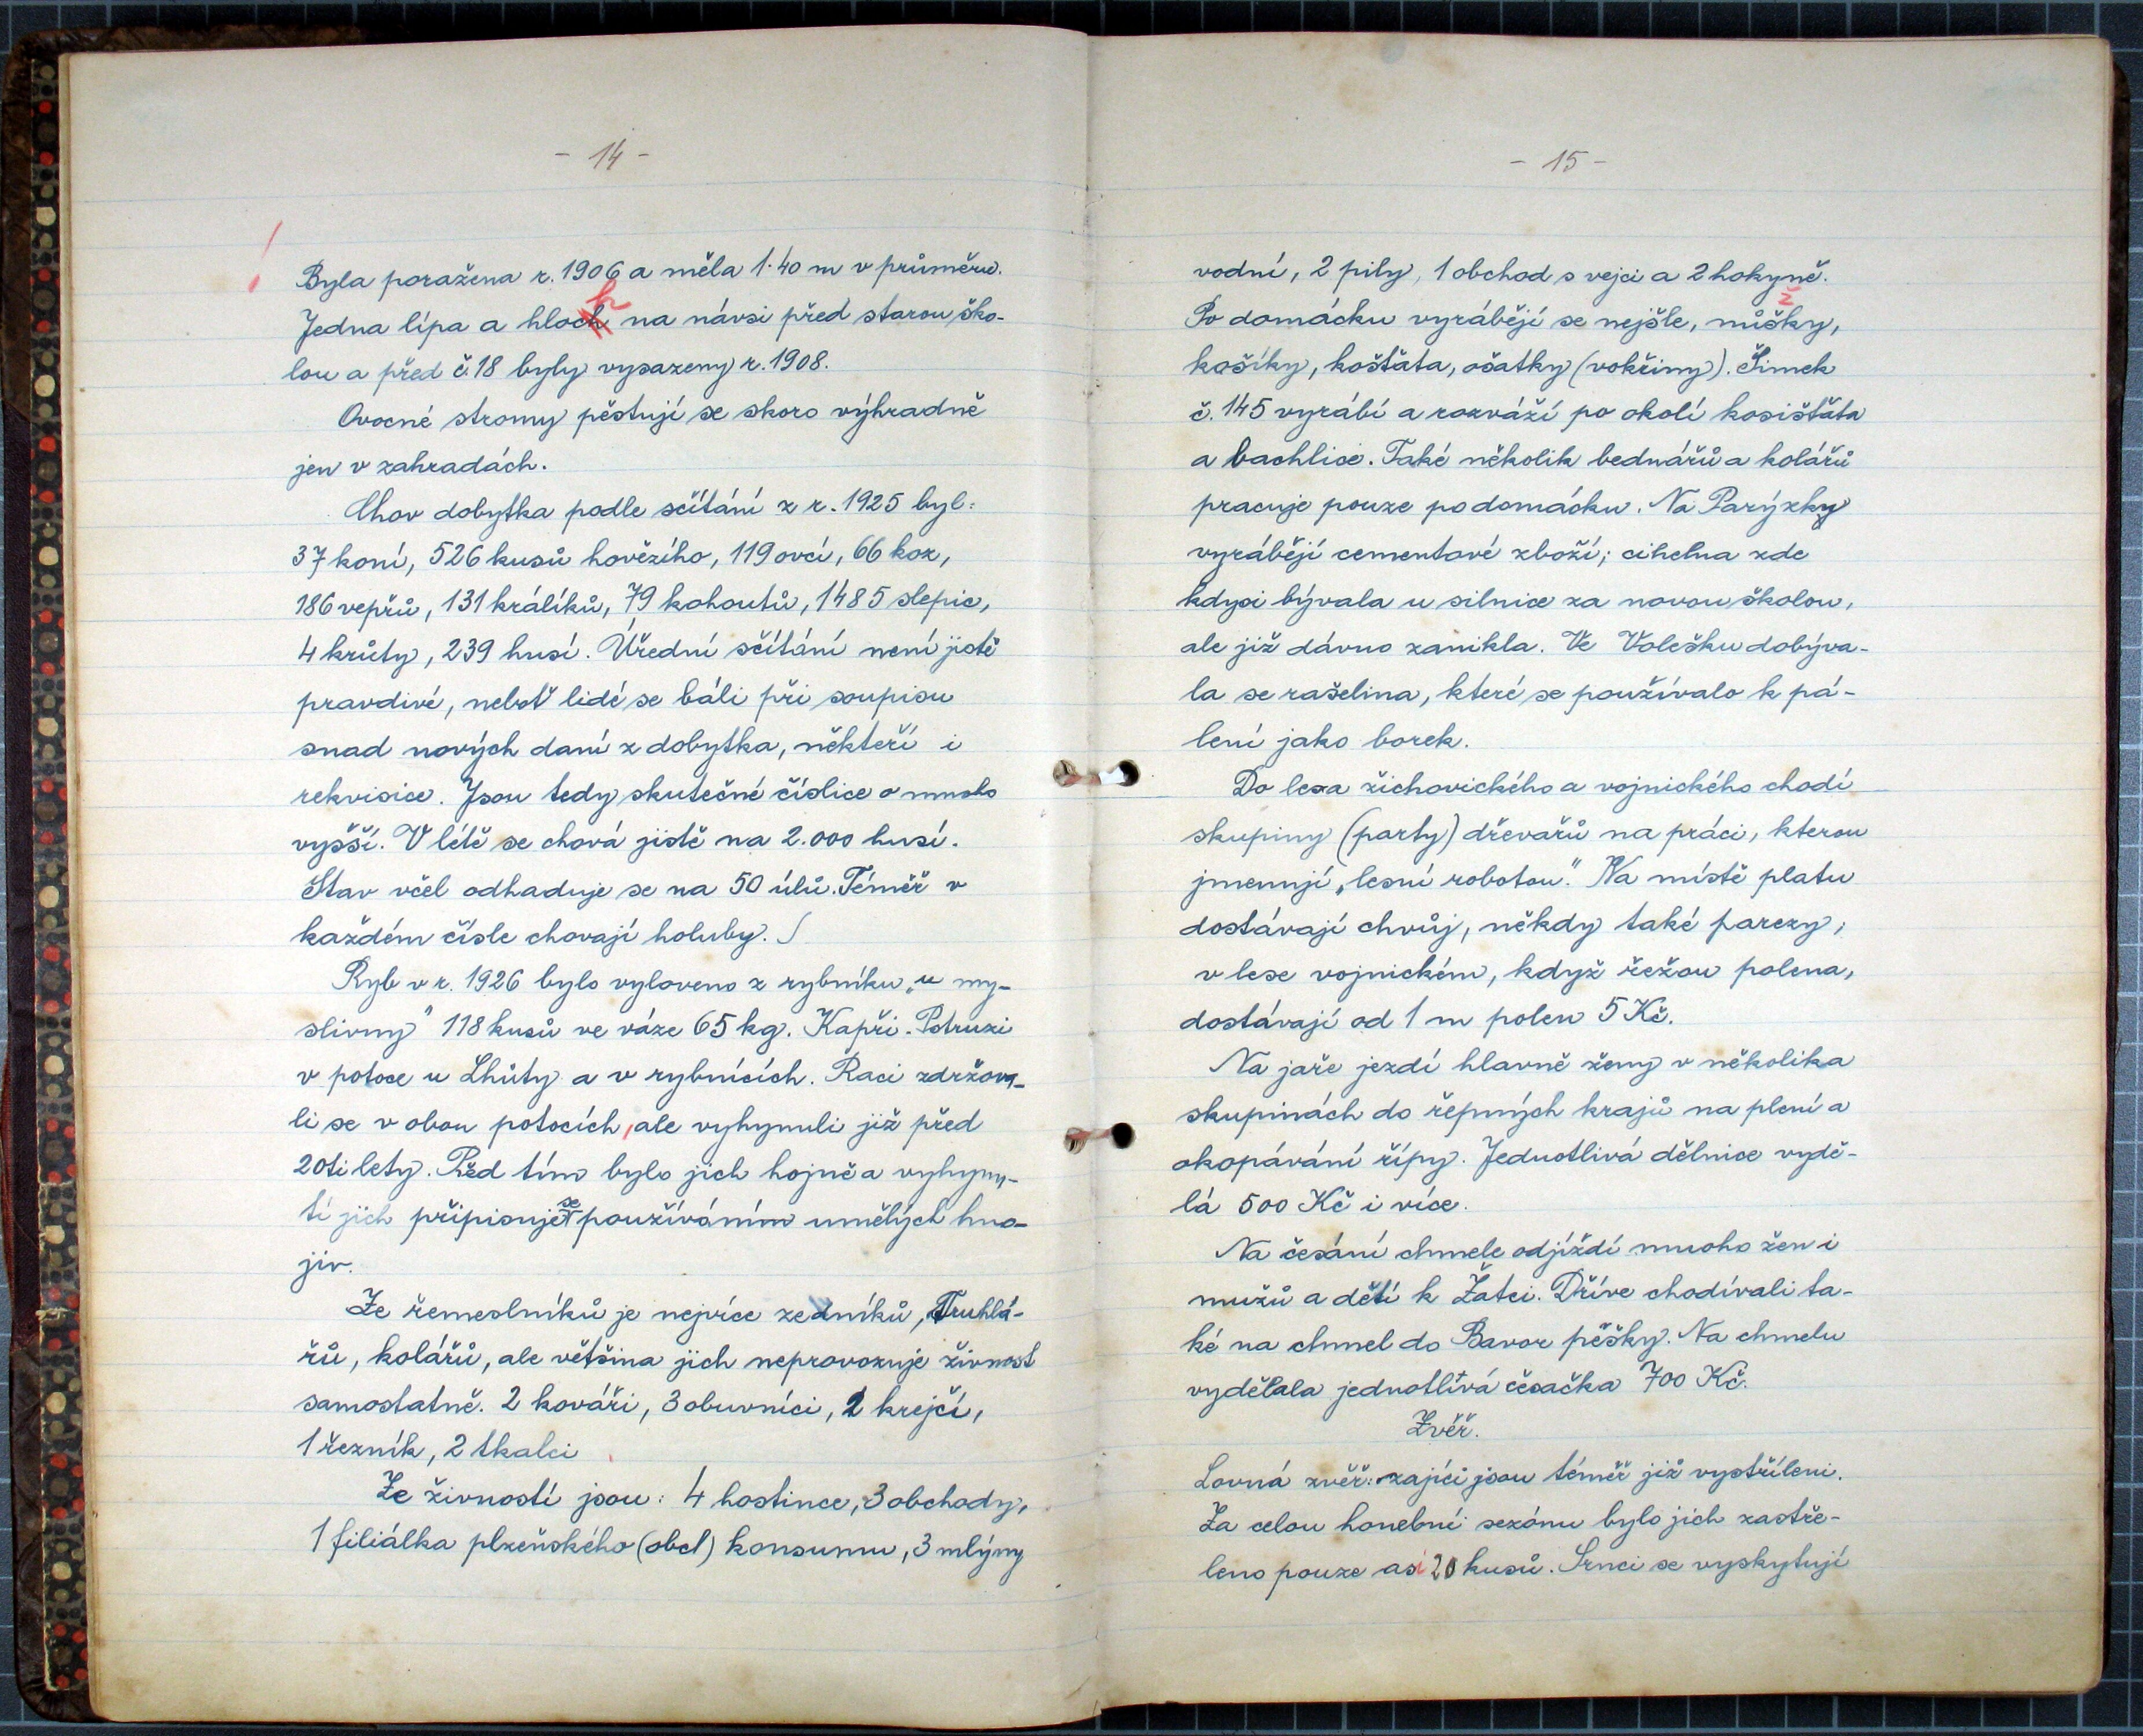 - 14 -
Byla poražena r. 1906 a měla 1·40 m v průměru.
Jedna lípa a hloh na návsi před starou ško-
lou a před č. 18 byly vysazeny r. 1908.
Ovocné stromy pěstují se skoro výhradně
jen v zahradách.
Chov dobytka podle sčítání z r. 1925 byl:
37 koní, 526 kusů hovězího, 119 ovcí, 66 koz,
186 vepřů, 131 králíků, 79 kohoutů, 1485 slepic,
4 krůty, 239 husí. Úřední sčítání není jistě
pravdivé, neboť lidé se báli při soupisu
snad nových daní z dobytka, někteří i
rekvisice. Jsou tedy skutečné číslice o mnoho
vyšší. V létě se chová jistě na 2.000 husí.
Stav včel odhaduje se na 50 úlů. Téměř v
každém čísle chovají holuby.
Ryb v r. 1926 bylo vyloveno z rybníku „u my-
slivny" 118 kusů ve váze 65 kg. Kapři. Pstruzi
v potoce u Lhůty a v rybnících. Raci zdržova-
li se v obou potocích, ale vyhynuli již před
20ti lety. Před tím bylo jich hojně a vyhynu-
tí jich připisuje se používáním umělých hno-
jiv.
Ze řemeslníků je nejvíce zedníků, Truhlá-
řů, kolářů, ale většina jich neprovozuje živnost
samostatně. 2 kováři, 3 obuvníci, 2 krejčí,
1 řezník, 2 tkalci
Ze živností jsou: 4 hostince, 3 obchody,
1 filiálka plzeňského (obch) konsumu, 3 mlýny
- 15 -
vodní, 2 pily, 1 obchod s vejci a 2 hokyně.
Po domácku vyrábějí se nejšle, nůšky, ž
košíky, košťata, ošatky (vokřiny). Šimek
č. 145 vyrábí a rozváží po okolí kosišťata
a bachlice. Také několik bednářů a kolářů
pracuje pouze po domácku. Na Parýzky
vyrábějí cementové zboží; cihelna zde
kdysi bývala u silnice za novou školou,
ale již dávno zanikla. Ve Volešku dobýva-
la se rašelina, které se používalo k pá-
lení jako borek.
Do lesa žichovického a vojnického chodí
skupiny (party) dřevařů na práci, kterou
jmenují „lesní robotou." Na místě platu
dostávají chvůj, někdy také parezy;
v lese vojnickém, když řežou polena,
dostávají od 1 m polen 5 Kč.
Na jaře jezdí hlavně ženy v několika
skupinách do řepných krajů na plení a
okopávání řípy. Jednotlivá dělnice vydě-
lá 500 Kč i více.
Na česání chmele odjíždí mnoho žen i
mužů a dětí k Žatci. Dříve chodívali ta-
ké na chmel do Bavor pěšky. Na chmelu
vydělala jednotlivá česačka 700 Kč.
Zvěř.
Lovná zvěř: zajíci jsou téměř již vystříleni.
Za celou honební sezónu bylo jich zastře-
leno pouze asi 20 kusů. Srnci se vyskytují